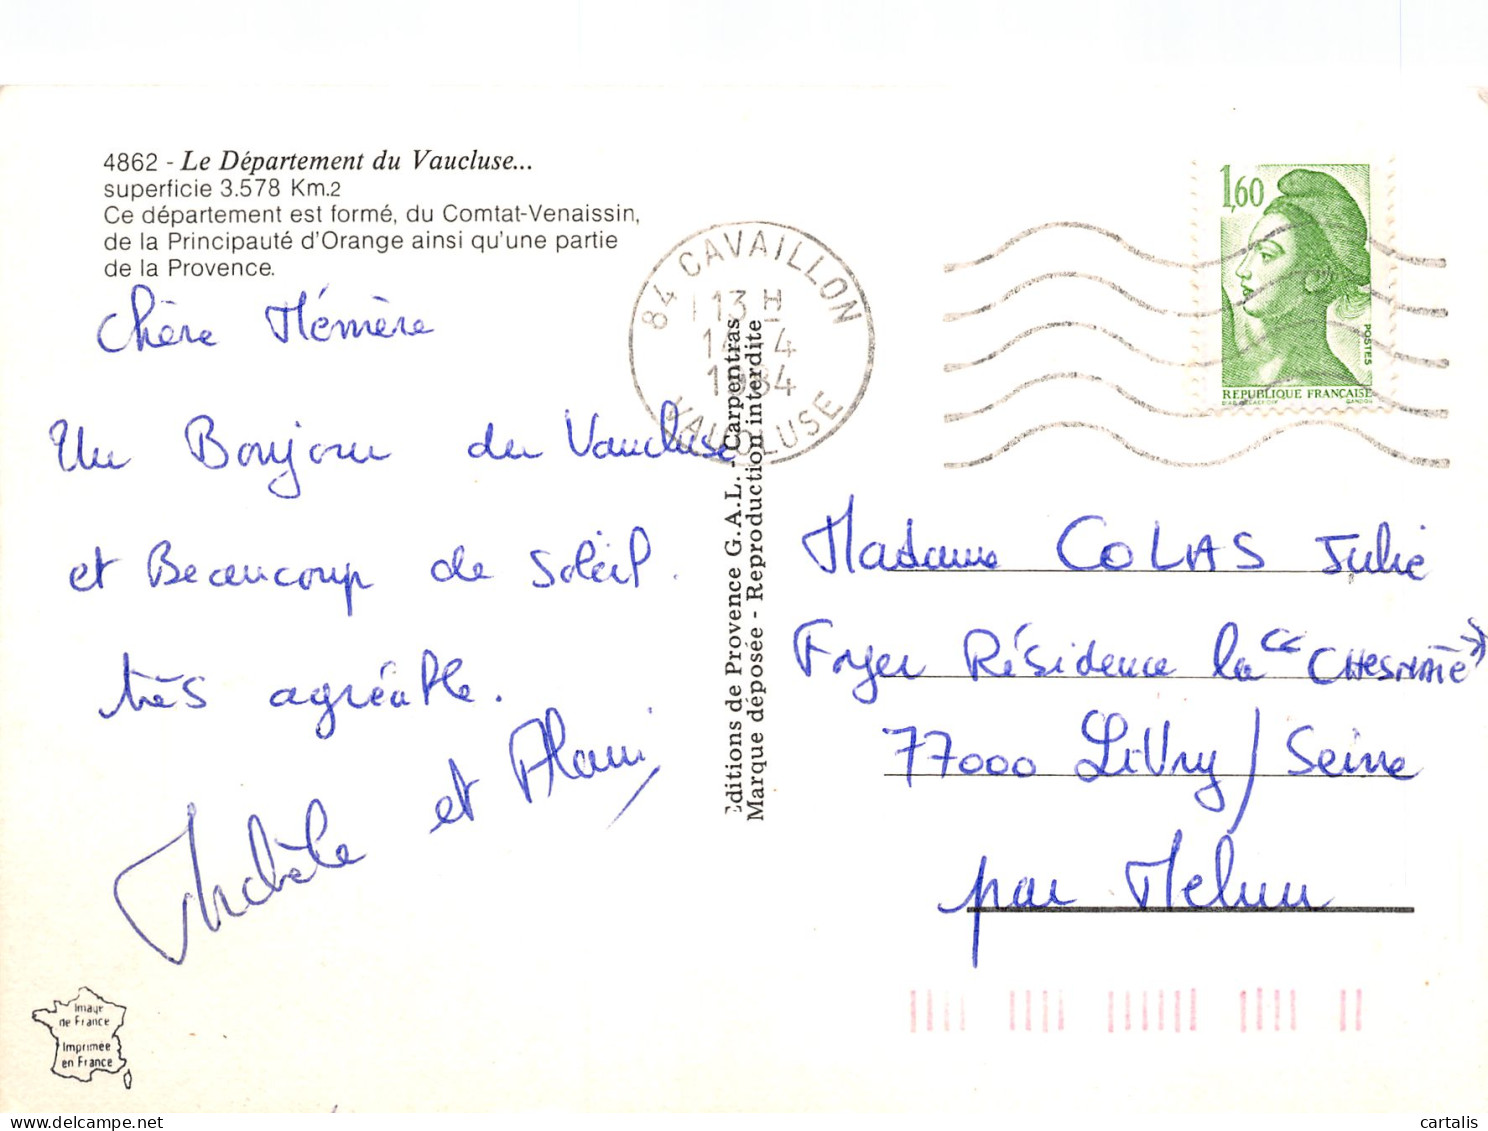 4862 - Le Département du Vaucluse...
superficie 3.578 Km.2
Ce département est formé, du Comtat-Venaissin,
de la Principauté d'Orange ainsi qu'une partie
de la Provence.
chère Mémère
Un Bonjour du Vaucluse
et Beaucoup de Soleil.
très agréable.
Michèle et Alain
Image
de France
Imprimée
en France
Editions de Provence G.A.L. - Carpentras
Marque déposée - Reproduction interdite
84 CAVAILLON
13 H
14-4
1984
VAUCLUSE
1,60
POSTES
REPUBLIQUE FRANÇAISE
GANDON
Madame COLAS Julie
Foyer Résidence la "CHESNAIE"
77000 LiVry/Seine
par Melun
cartalis
delcampe.net